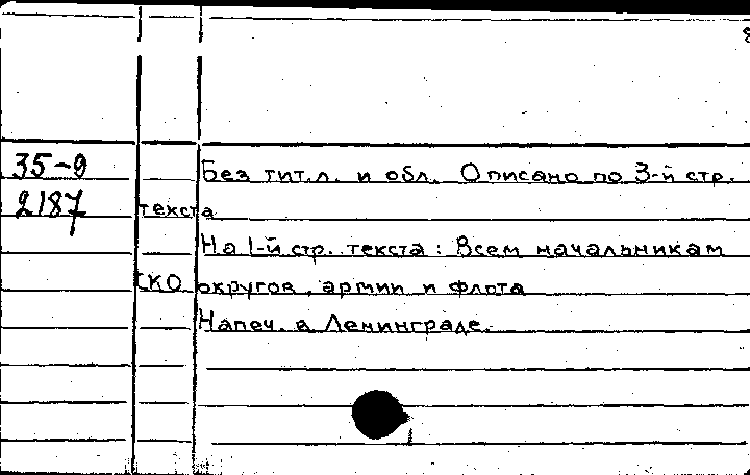 35-9 Без тит.л. и обл. Описано по 3-й стр.
2187 текста
На 1-й стр. текста: Всем начальникам
СКО округов, армии и флота
Напеч. в Ленинграде.